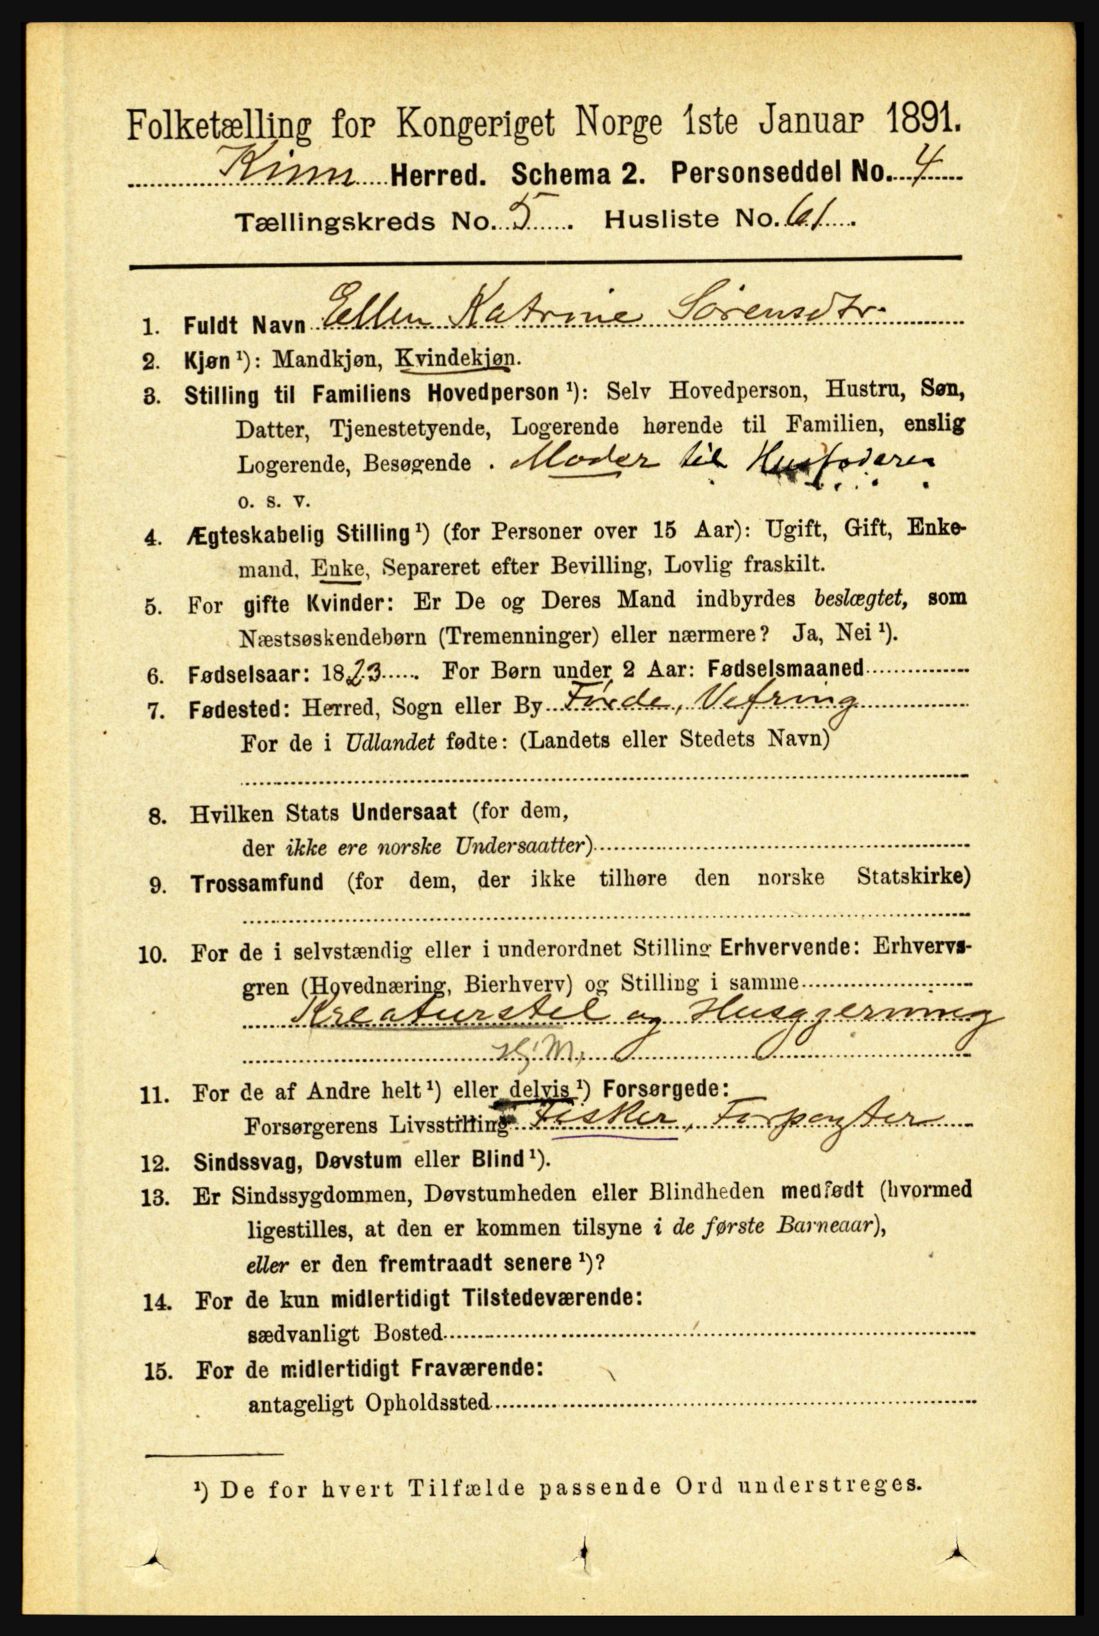 Folketælling for Kongeriget Norge 1ste Januar 1891.
Kinn Herred. Schema 2. Personseddel No. 4
Tællingskreds No. 5. Husliste No. 61.
1. Fuldt Navn Ellen Katrine Sørensdtr.
2. Kjøn ¹): Mandkjøn, Kvindekjøn.
3. Stilling til Familiens Hovedperson ¹): Selv Hovedperson, Hustru, Søn,
Datter, Tjenestetyende, Logerende hørende til Familien, enslig
Logerende, Besøgende . Moder til Husfaderen
o. s. v.
4. Ægteskabelig Stilling ¹) (for Personer over 15 Aar): Ugift, Gift, Enke-
mand, Enke, Separeret efter Bevilling, Lovlig fraskilt.
5. For gifte Kvinder: Er De og Deres Mand indbyrdes beslægtet, som
Næstsøskendebørn (Tremenninger) eller nærmere? Ja, Nei ¹).
6. Fødselsaar: 1823. For Børn under 2 Aar: Fødselsmaaned
7. Fødested: Herred, Sogn eller By Førde, Vefring
For de i Udlandet fødte: (Landets eller Stedets Navn)
8. Hvilken Stats Undersaat (for dem,
der ikke ere norske Undersaatter)
9. Trossamfund (for dem, der ikke tilhøre den norske Statskirke)
10. For de i selvstændig eller i underordnet Stilling Erhvervende: Erhvervs-
gren (Hovednæring, Bierhverv) og Stilling i samme
Kreaturstel og Husgjerning
Hj. M.
11. For de af Andre helt ¹) eller delvis ¹) Forsørgede:
Forsørgerens Livsstilling Fisker, Forpagter
12. Sindssvag, Døvstum eller Blind ¹).
13. Er Sindssygdommen, Døvstumheden eller Blindheden medfødt (hvormed
ligestilles, at den er kommen tilsyne i de første Barneaar),
eller er den fremtraadt senere ¹)?
14. For de kun midlertidigt Tilstedeværende:
sædvanligt Bosted
15. For de midlertidigt Fraværende:
antageligt Opholdssted
¹) De for hvert Tilfælde passende Ord understreges.